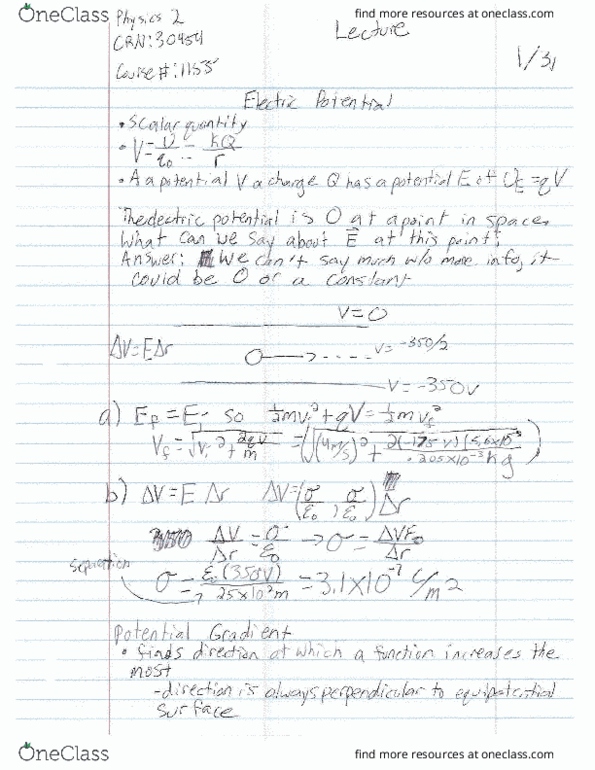 OneClass
find more resources at oneclass.com
Physics 2
Lecture
CRN: 30454
Course #: 1155
1/31
Electric Potential
• Scalar quantity
• V = U/q₀ = kQ/r
• A a potential V a charge Q has a potential E of U_E = qV
The electric potential is 0 at a point in space.
What can we say about E⃗ at this point;
Answer: We can't say much w/o more info, it
could be 0 or a constant
V=0
ΔV = EΔr
V = -350/2
V = -350V
a) E_f = E_i so ½mv_i² + qV = ½mv_f²
V_f = √(v_i² + 2qV/m) = √((4m/s)² + 2(-175 V)(5,6x10⁻³)/.205x10⁻³kg)
b) ΔV = E Δr ΔV = (σ/ε₀, σ/ε₀) Δr
ΔV/Δr = σ/ε₀ → σ = ΔVE₀/Δr
separation
σ = ε₀(350V)/25x10³m = 3.1x10⁻⁷ C/m2
Potential Gradient
• finds direction at which a function increases the
most
-direction is always perpendicular to equipotential
surface
OneClass
find more resources at oneclass.com